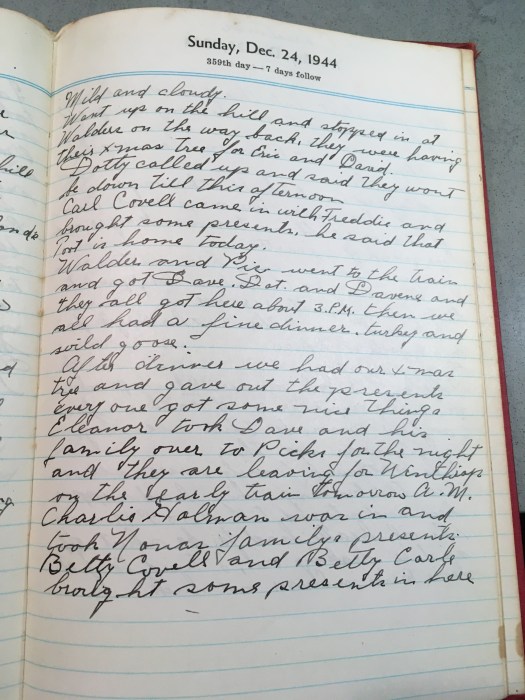 Sunday, Dec. 24, 1944
359th day — 7 days follow
Mild and cloudy.
Went up on the hill and stopped in at
Walders on the way back, they were having
their xmas tree for Eric and David.
Dotty called up and said they wont
be down till this afternoon
Carl Covell came in with Freddie and
brought some presents, he said that
Poot is home today.
Walder and Pic went to the train
and got Dave, Dot. and Davene and
they all got here about 3.P.M. then we
all had a fine dinner. turkey and
wild goose.
After dinner we had our xmas
tree and gave out the presents
every one got some nice things
Eleanor took Dave and his
family over to Picks for the night
and they are leaving for Winthrop
on the early train tomorrow A.M.
Charlie Holman was in and
took Nonas familys presents.
Betty Covell and Betty Carle
brought some presents in here